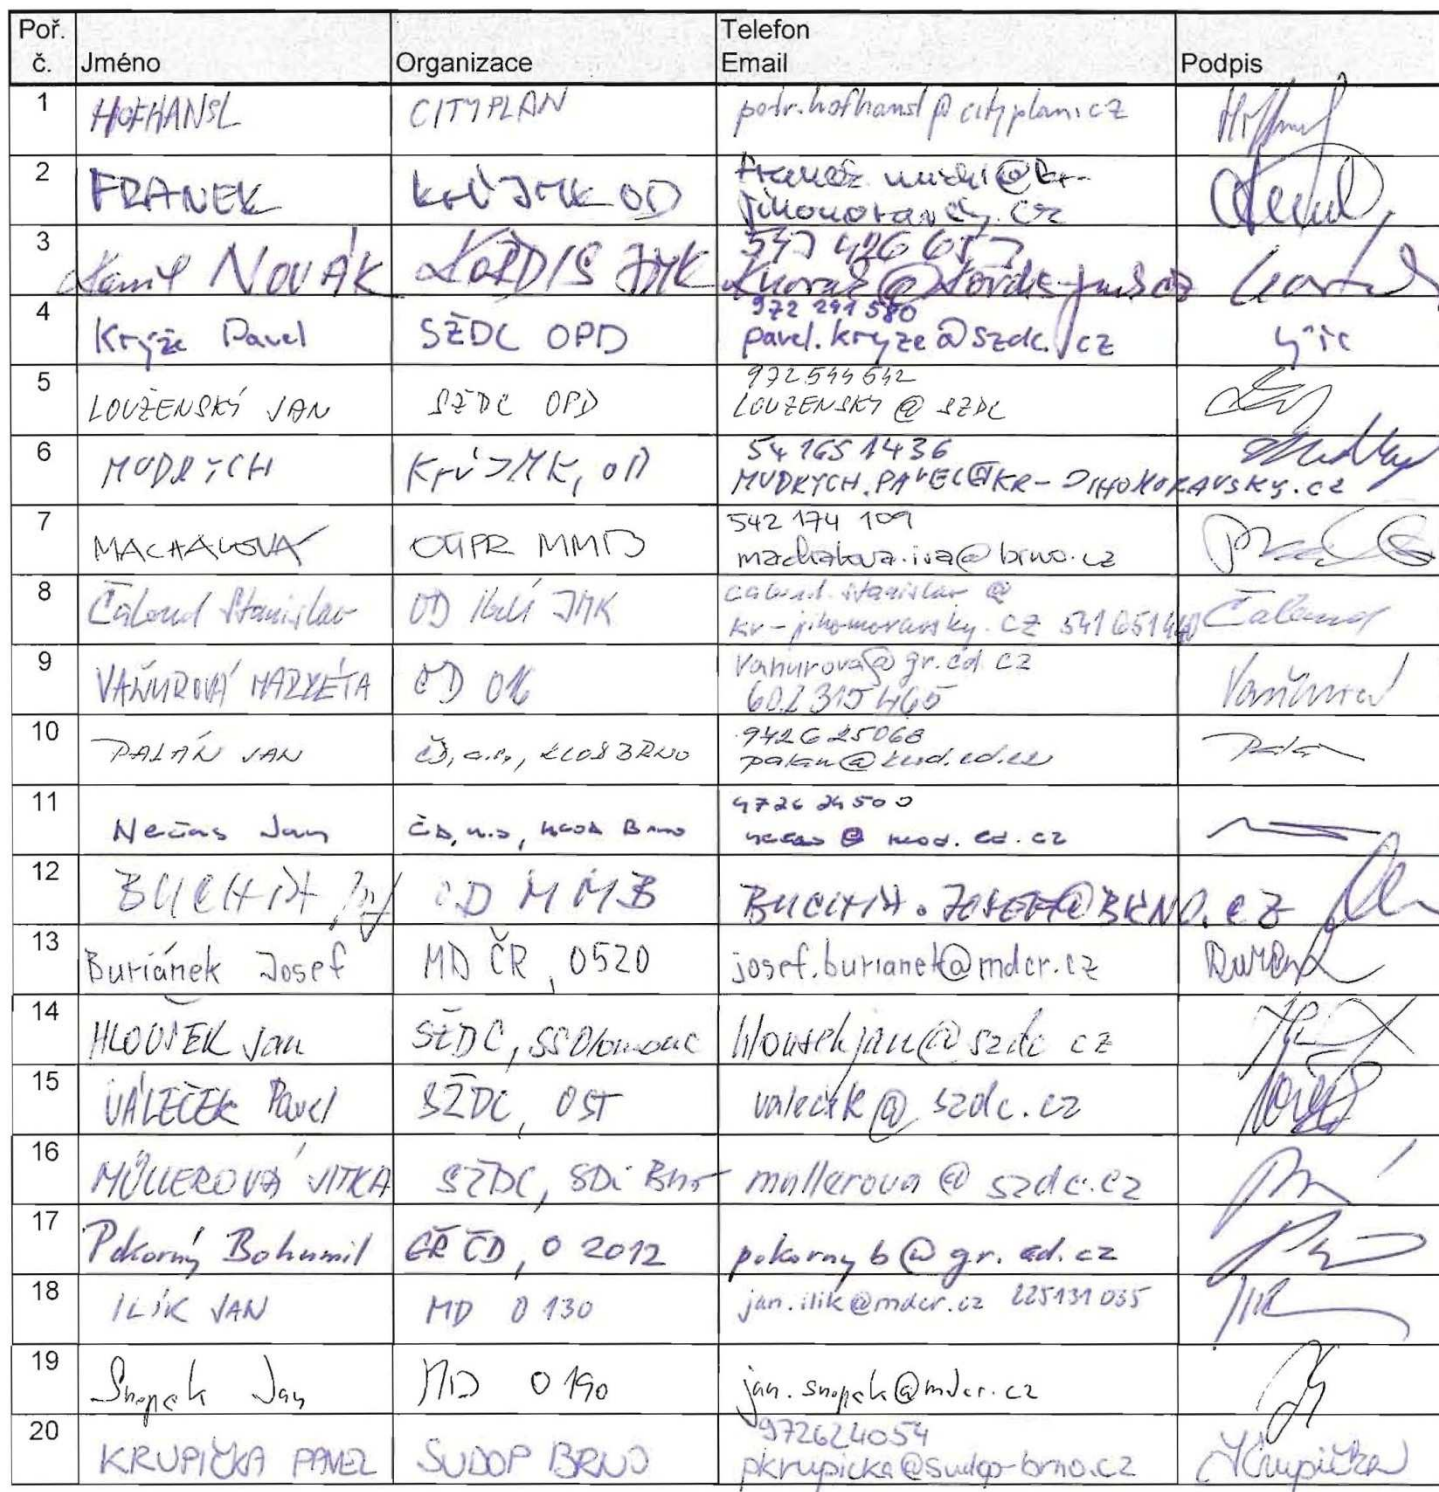 Poř. č. Jméno Organizace Telefon Email Podpis
1 HOFHANSL CITYPLAN petr.hofhansl@cityplan.cz
2 FRANEK KrÚ JMK OD
3 Kamil NOVÁK KORDIS JMK 547 426 657
4 Kryže Pavel SŽDC OPD 972 241 580 pavel.kryze@szdc.cz
5 LOUŽENSKÝ JAN SŽDC OPD 972544642 LOUZENSKY @ SZDC
6 MUDRYCH KrÚ JMK, OD 541651436 MUDRYCH.PAVEL@KR-JIHOMORAVSKY.CZ
7 MACHALOVÁ MMB 542 174 109 machalova.iva@brno.cz
8 Čaloud Stanislav OD JMK caloud.stanislav @ kr-jihomoravsky.cz Čaloud
9 VAŇUROVÁ MARKÉTA ČD O16 vanurova@gr.cd.cz 602 315 465
10 PALÁN JAN ČD, a.s., BRNO
11 Nečas Jan ČD, a.s., Brno 972624500
12 BUCHTA OD MMB BUCHTA.JOSEF@BRNO.CZ
13 Buriánek Josef MD ČR, 0520 josef.burianek@mdcr.cz
14 HLOUŠEK Jan SŽDC, SS Olomouc hlousekjan@szdc cz
15 VÁLEČEK Pavel SŽDC, OST valecek@szdc.cz
16 MÜLLEROVÁ JITKA SŽDC, SDC Brno mullerova @ szdc.cz
17 Pokorný Bohumil GŘ ČD, O 2012 pokorny b@gr.cd.cz
18 ILÍK JAN MD 0130 jan.ilik@mdcr.cz 225131035
19 Snopek Jan MD 0190 jan.snopek@mdcr.cz
20 KRUPIČKA PAVEL SUDOP BRNO 972624054 pkrupicka@sudop-brno.cz Krupička